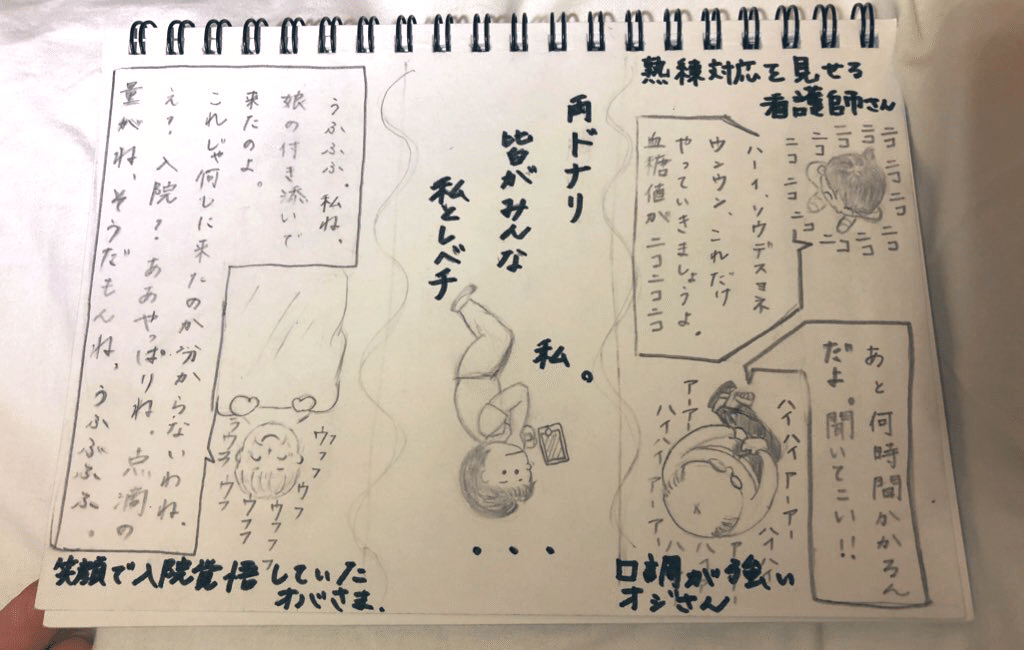 熟練対応を見せる
看護師さん
ニコ ニコ ニコ ニコ ニコ ニコ ニコ ニコ ニコ ニコ ニコ ニコ
ハーイ、ソウデスヨネ
ウンウン、これだけ
やっていきましょうよ。
血糖値が ニコニコニコ
あと何時間かかるん
だよ。聞いてこい!!
アーアー
ハイハイ
ハイハイ アーアー
アーアー
ハイハイ
口調が強い
オジさん
両ドナリ
皆がみんな
私としべチ
私。
・・・
うふふふ。私ね、
娘の付き添いで
来たのよ。
これじゃ何しに来たのか分からないわね。
え? 入院? ああやっぱりね。点滴の
量がね、そうだもんね、うふぶぶふ。
ウフフ
ウフフ
ウフフ
ウフフ
笑顔で入院覚悟していた
オバさま。